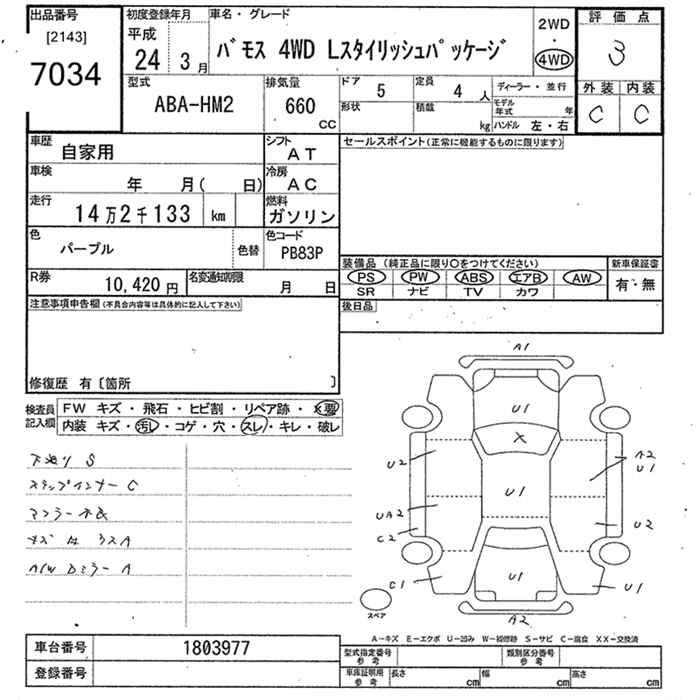 出品番号
[2143]
7034
初度登録年月
平成
24 3月
車名・グレード
バモス 4WD Lスタイリッシュパッケージ
2WD
・
4WD
評価点
3
外装 内装
C C
型式
ABA-HM2
排気量
660
CC
ドア 5
形状
定員 4 人
積載 kg
ディーラー・並行
モデル年式 年
ハンドル 左・右
車歴
自家用
シフト
AT
車検
年 月( 日)
冷房
AC
走行
14万2千133 km
燃料
ガソリン
色
パープル
色替
色コード
PB83P
R券
10,420円
名変通知期限
月 日
セールスポイント(正常に機能するものに限ります)
装備品 (純正品に限り〇をつけてください)
PS PW ABS エアB AW
SR ナビ TV カワ
新車保証書
有・無
後日品
注意事項申告欄(不具合内容等は具体的に記入して下さい)
修復歴 有〔箇所 〕
検査員記入欄
FW キズ・飛石・ヒビ割・リペア跡・X要
内装 キズ・汚レ・コゲ・穴・スレ・キレ・破レ
下廻り S
ステップインナー C
A1
U1
X
U2
A2
U1
U1
UA2
C2
U2
C1
U1
U1
A2
スペア
A－キズ E－エクボ U－凹み W－補修跡 S－サビ C－腐食 XX－交換済
車台番号 1803977
登録番号
型式指定番号
参考
類別区分番号
参考
車庫証明用
参考
長さ cm
幅 cm
高さ cm